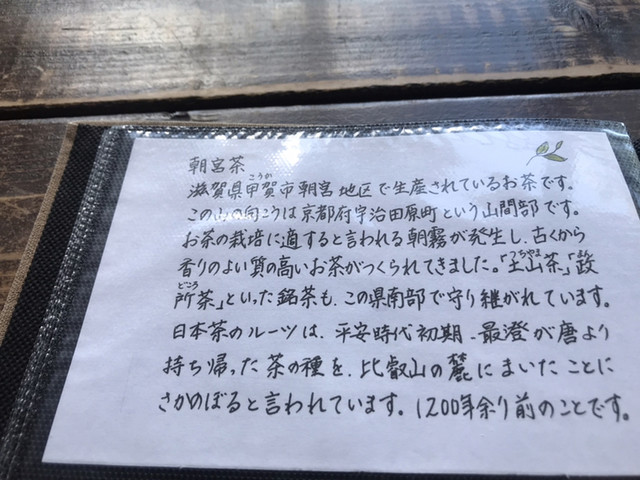 朝宮茶
滋賀県甲賀市朝宮地区で生産されているお茶です。
この山の向こうは京都府宇治田原町という山間部です。
お茶の栽培に適すると言われる朝霧が発生し、古くから
香りのよい質の高いお茶がつくられてきました。「土山茶」「政
所茶」といった銘茶も、この県南部で守り継がれています。
日本茶のルーツは、平安時代初期、最澄が唐より
持ち帰った茶の種を、比叡山の麓にまいたことに
さかのぼると言われています。1200年余り前のことです。